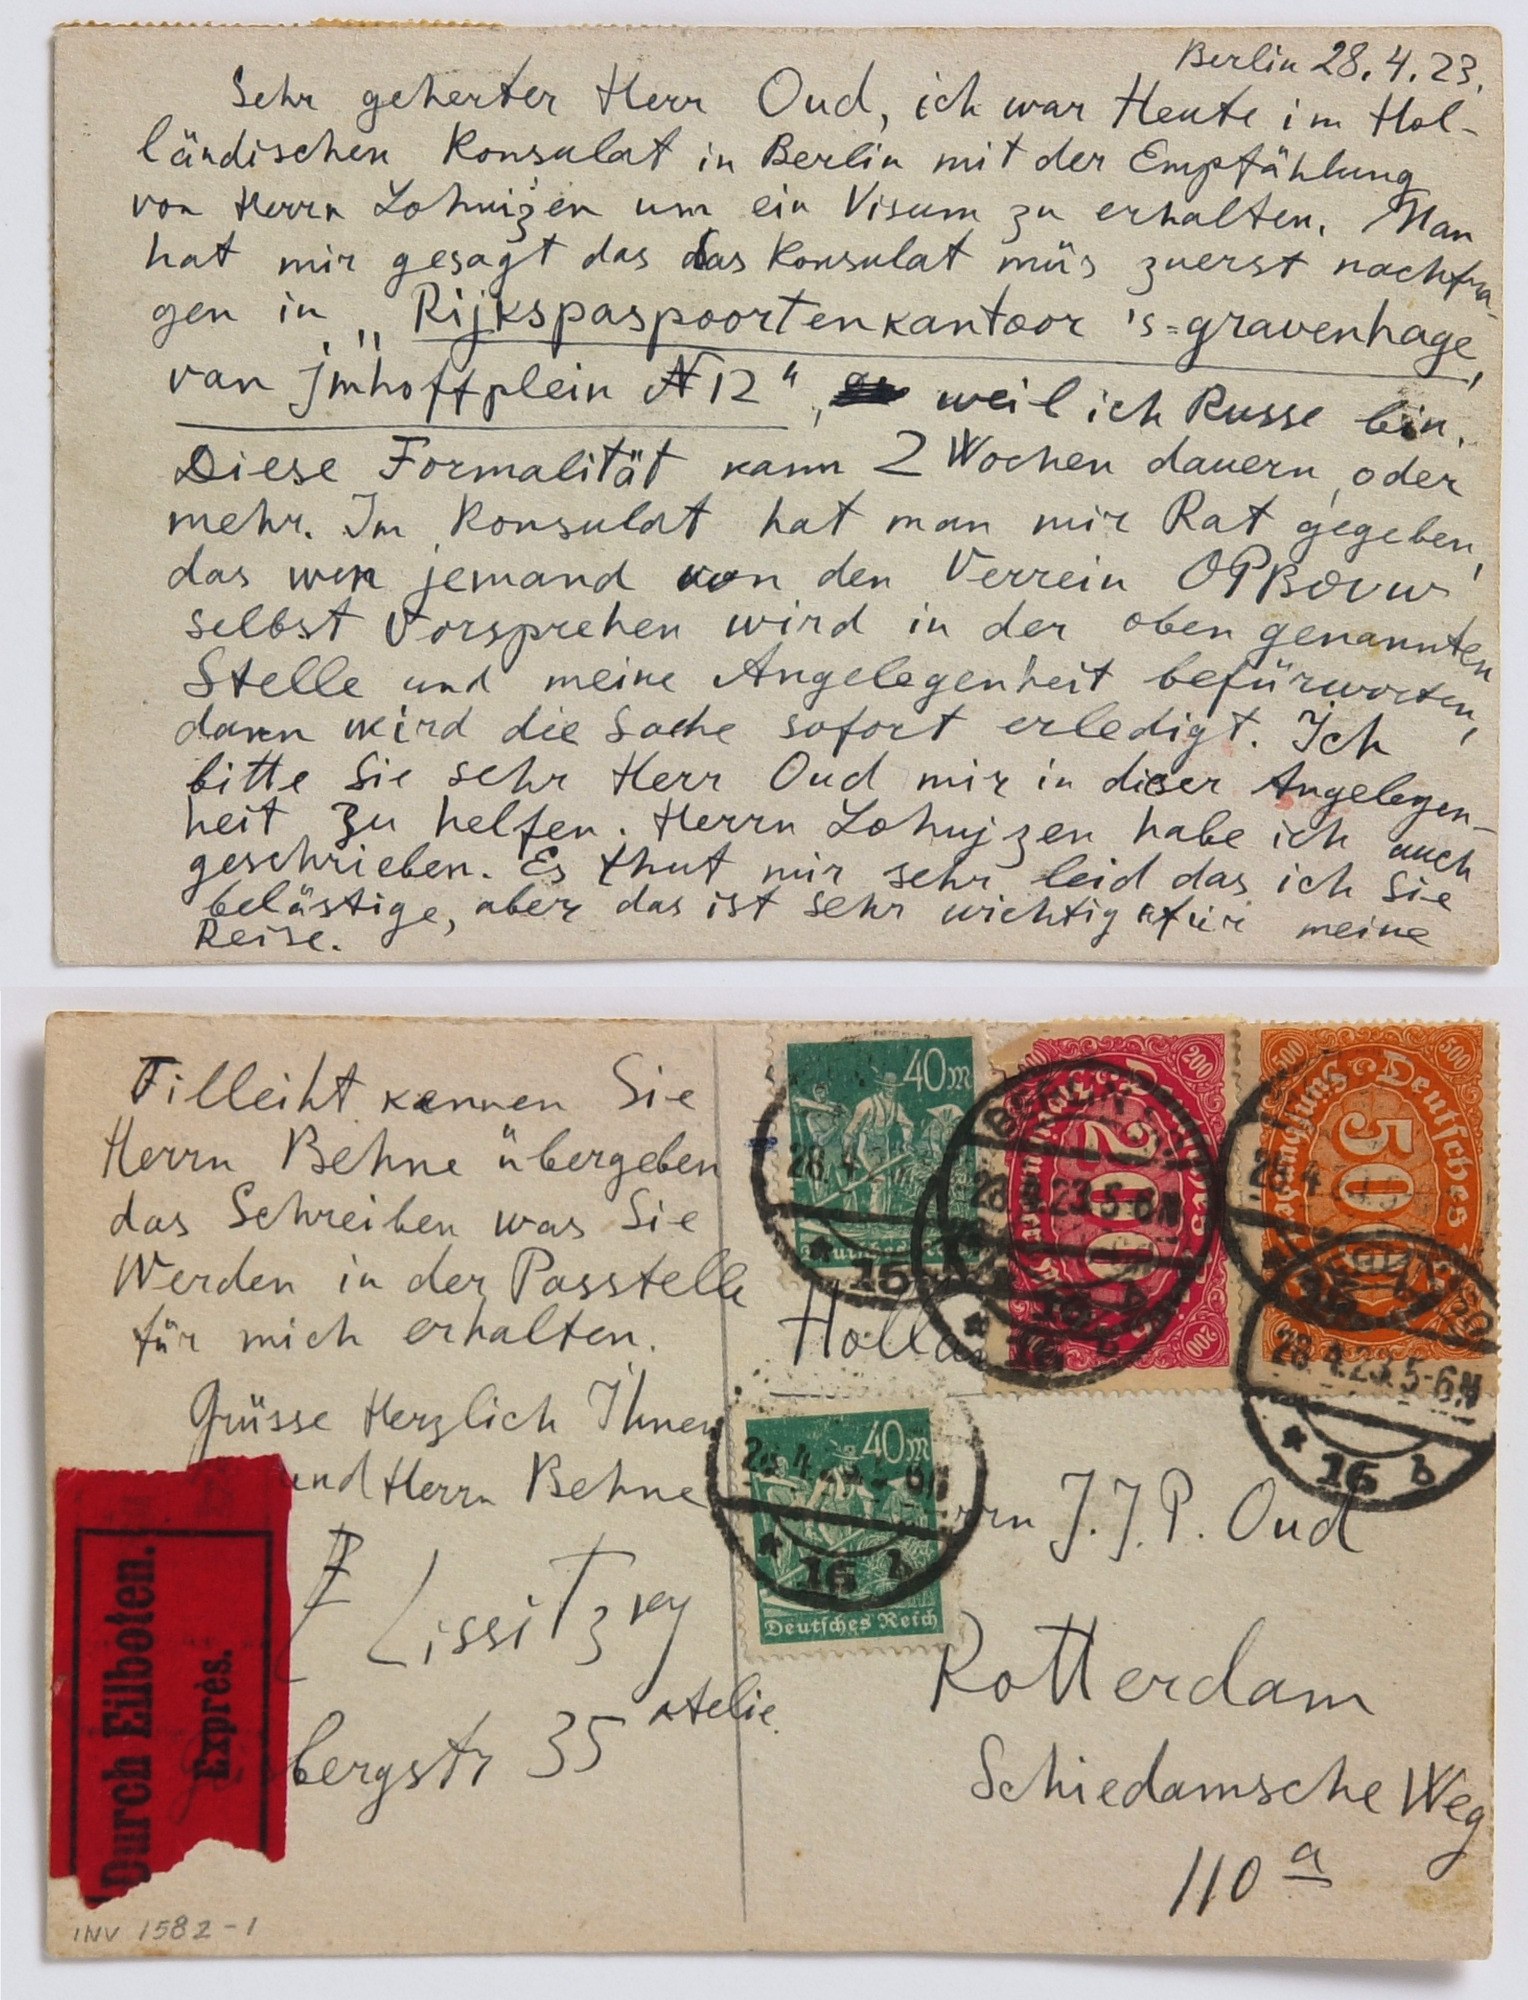 Berlin 28.4.23.
Sehr geherter Herr Oud, ich war Heute im Hol-
ländischen Konsulat in Berlin mit der Empfählung
von Herrn Lohuizen um ein Visum zu erhalten. Man
hat mir gesagt das das Konsulat müs zuerst nachfra-
gen in „Rijkspaspoortenkantoor 's=gravenhage,
van Jmhoffplein N12", weil ich Russe bin.
Diese Formalität kann 2 Wochen dauern, oder
mehr. Im Konsulat hat man mir Rat gegeben,
das wen jemand von den Verrein OPBouw
selbst Vorsprehen wird in der oben genannten
Stelle und meine Angelegenheit befürworten,
dann wird die Sache sofort erledigt. Ich
bitte Sie sehr Herr Oud mir in dieser Angelegen-
heit zu helfen. Herrn Lohujzen habe ich auch
geschrieben. Es thut mir sehr leid das ich Sie
belästige, aber das ist sehr wichtig für meine
Reise.
Filleiht kennen Sie
Herrn Behne übergeben
das Schreiben was Sie
Werden in der Passtelle
für mich erhalten.
Grüsse Herzlich Ihnen
und Herrn Behne
Lissitzky
bergstr 35 Atelie.
Durch Eilboten.
Exprès.
INV 1582-1
40 m
Deutsches Reich
28.4
16
200
200
200
BERLIN
28.4.23.5-6N
16 b
500
500
500
Deutsches
28.4
28.4.23.5-6N
* 16 b
Holla
40 m
Deutsches Reich
* 16 b
rrn J.J.P. Oud
Rotterdam
Schiedamsche Weg
110 a